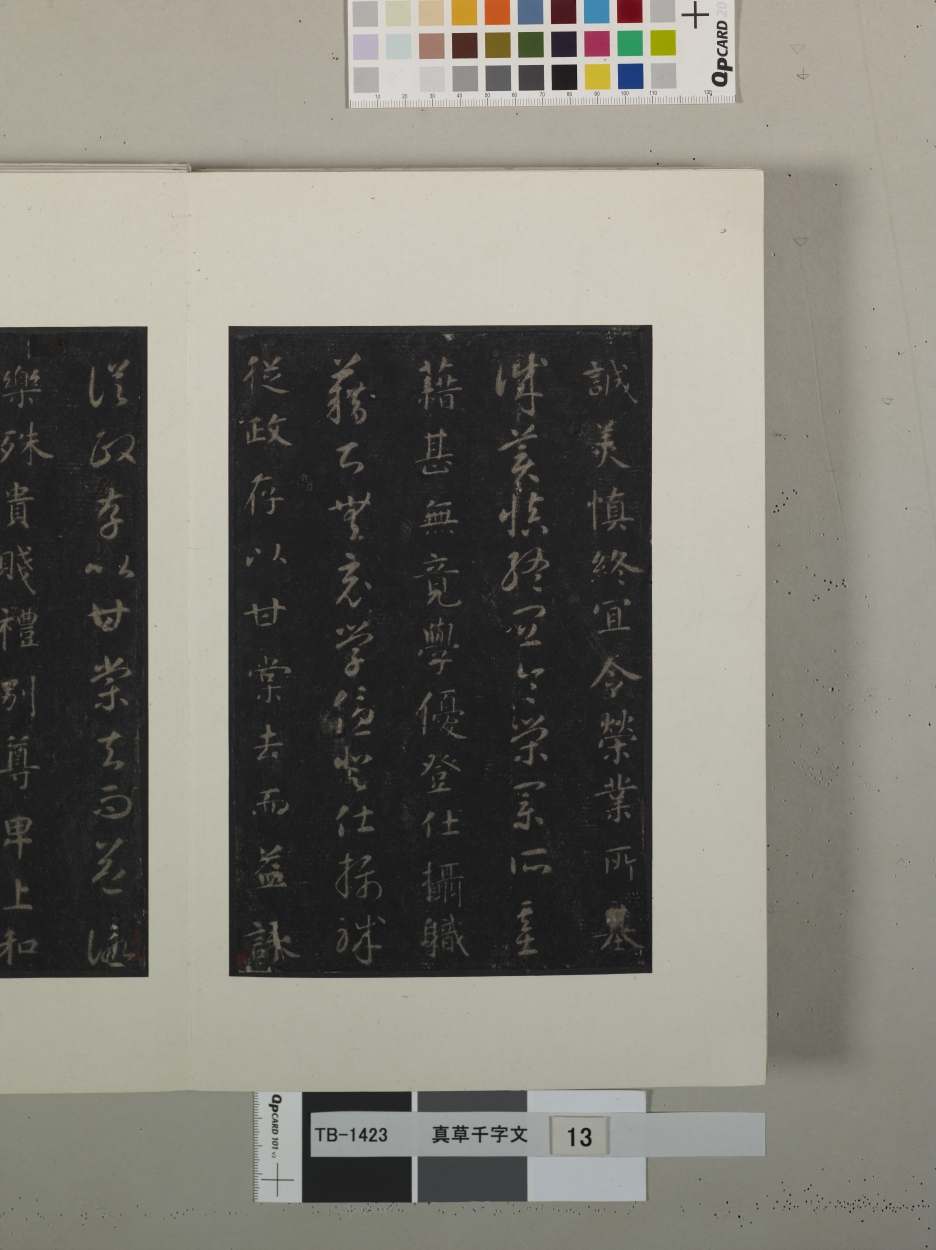 QPCARD 20
誠美慎終宜令榮業所基
誠美慎終宜令榮業所基
藉甚無竟學優登仕攝職
藉甚無竟學優登仕攝職
從政存以甘棠去而益詠
從政存以甘棠去而益詠
樂殊貴賤禮別尊卑上和
QPCARD 101 v3
TB-1423 真草千字文 13